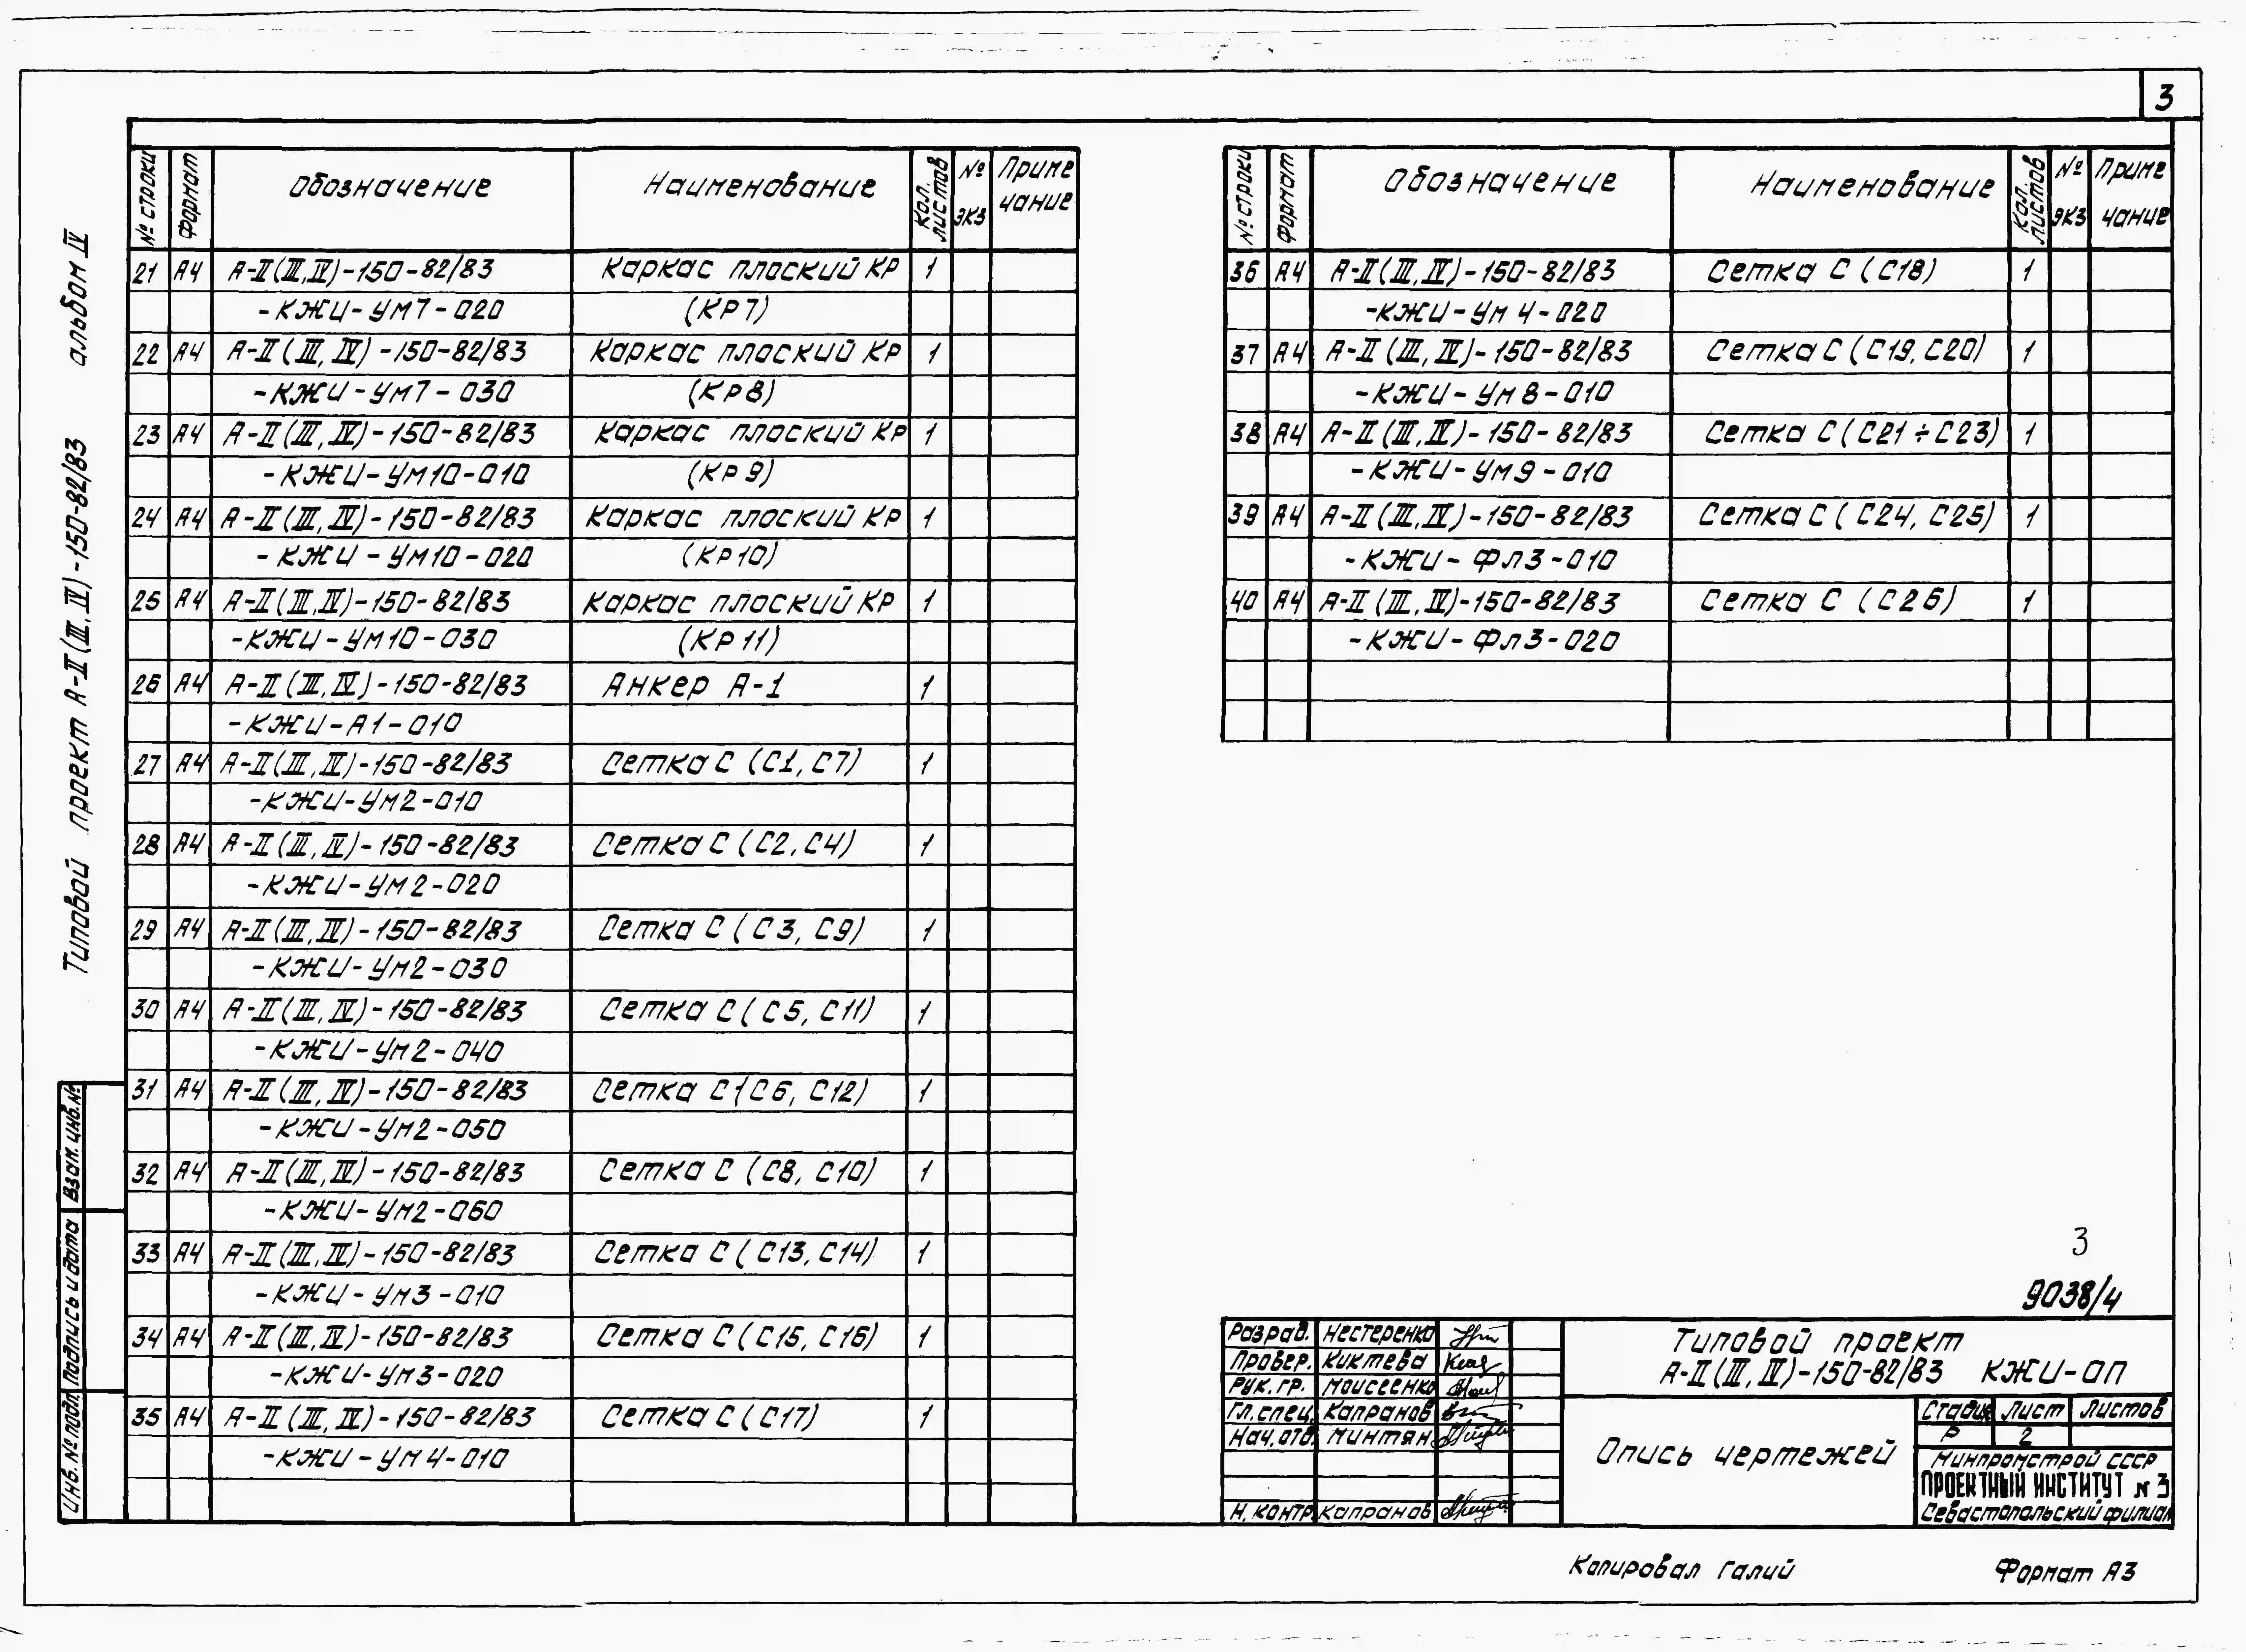 3
Типовой проект А-II(III,IV)-150-82/83 альбом IV
№ строки Формат Обозначение Наименование Кол. листов № экз Приме чание
21 А4 А-II(III,IV)-150-82/83 Каркас плоский КР 1
-КЖИ-УМ7-020 (КР7)
22 А4 А-II(III,IV)-150-82/83 Каркас плоский КР 1
-КЖИ-УМ7-030 (КР8)
23 А4 А-II(III,IV)-150-82/83 Каркас плоский КР 1
-КЖИ-УМ10-010 (КР9)
24 А4 А-II(III,IV)-150-82/83 Каркас плоский КР 1
-КЖИ-УМ10-020 (КР10)
25 А4 А-II(III,IV)-150-82/83 Каркас плоский КР 1
-КЖИ-УМ10-030 (КР11)
26 А4 А-II(III,IV)-150-82/83 Анкер А-1 1
-КЖИ-А1-010
27 А4 А-II(III,IV)-150-82/83 Сетка С (С1, С7) 1
-КЖИ-УМ2-010
28 А4 А-II(III,IV)-150-82/83 Сетка С (С2, С4) 1
-КЖИ-УМ2-020
29 А4 А-II(III,IV)-150-82/83 Сетка С (С3, С9) 1
-КЖИ-УМ2-030
30 А4 А-II(III,IV)-150-82/83 Сетка С (С5, С11) 1
-КЖИ-УМ2-040
31 А4 А-II(III,IV)-150-82/83 Сетка С (С6, С12) 1
-КЖИ-УМ2-050
32 А4 А-II(III,IV)-150-82/83 Сетка С (С8, С10) 1
-КЖИ-УМ2-060
33 А4 А-II(III,IV)-150-82/83 Сетка С (С13, С14) 1
-КЖИ-УМ3-010
34 А4 А-II(III,IV)-150-82/83 Сетка С (С15, С16) 1
-КЖИ-УМ3-020
35 А4 А-II(III,IV)-150-82/83 Сетка С (С17) 1
-КЖИ-УМ4-010
№ строки Формат Обозначение Наименование Кол. листов № экз Приме чание
36 А4 А-II(III,IV)-150-82/83 Сетка С (С18) 1
-КЖИ-УМ4-020
37 А4 А-II(III,IV)-150-82/83 Сетка С (С19, С20) 1
-КЖИ-УМ8-010
38 А4 А-II(III,IV)-150-82/83 Сетка С (С21÷С23) 1
-КЖИ-УМ9-010
39 А4 А-II(III,IV)-150-82/83 Сетка С (С24, С25) 1
-КЖИ-ФЛ3-010
40 А4 А-II(III,IV)-150-82/83 Сетка С (С26) 1
-КЖИ-ФЛ3-020
Взам. инв. №
Подпись и дата
Инв. № подл.
3
9038/4
Разраб. Нестеренко
Провер. Киктева
Рук. гр. Моисеенко
Гл. спец. Капранов
Нач. отд. Минтян
Н. контр. Капранов
Типовой проект
А-II(III,IV)-150-82/83 КЖИ-ОП
Опись чертежей
Стадия Лист Листов
Р 2
Минпромстрой СССР
ПРОЕКТНЫЙ ИНСТИТУТ № 3
Севастопольский филиал
Копировал Галий Формат А3